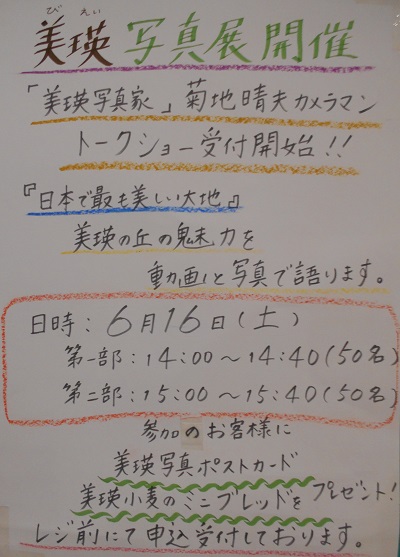 びえい
美瑛写真展開催
「美瑛写真家」菊地晴夫カメラマン
トークショー受付開始!!
『日本で最も美しい大地』
美瑛の丘の魅力を
動画と写真で語ります。
日時:6月16日(土)
第一部:14:00〜14:40(50名)
第二部:15:00〜15:40(50名)
参加のお客様に
美瑛写真ポストカード
美瑛小麦のミニブレッドをプレゼント!
レジ前にて申込受付しております。